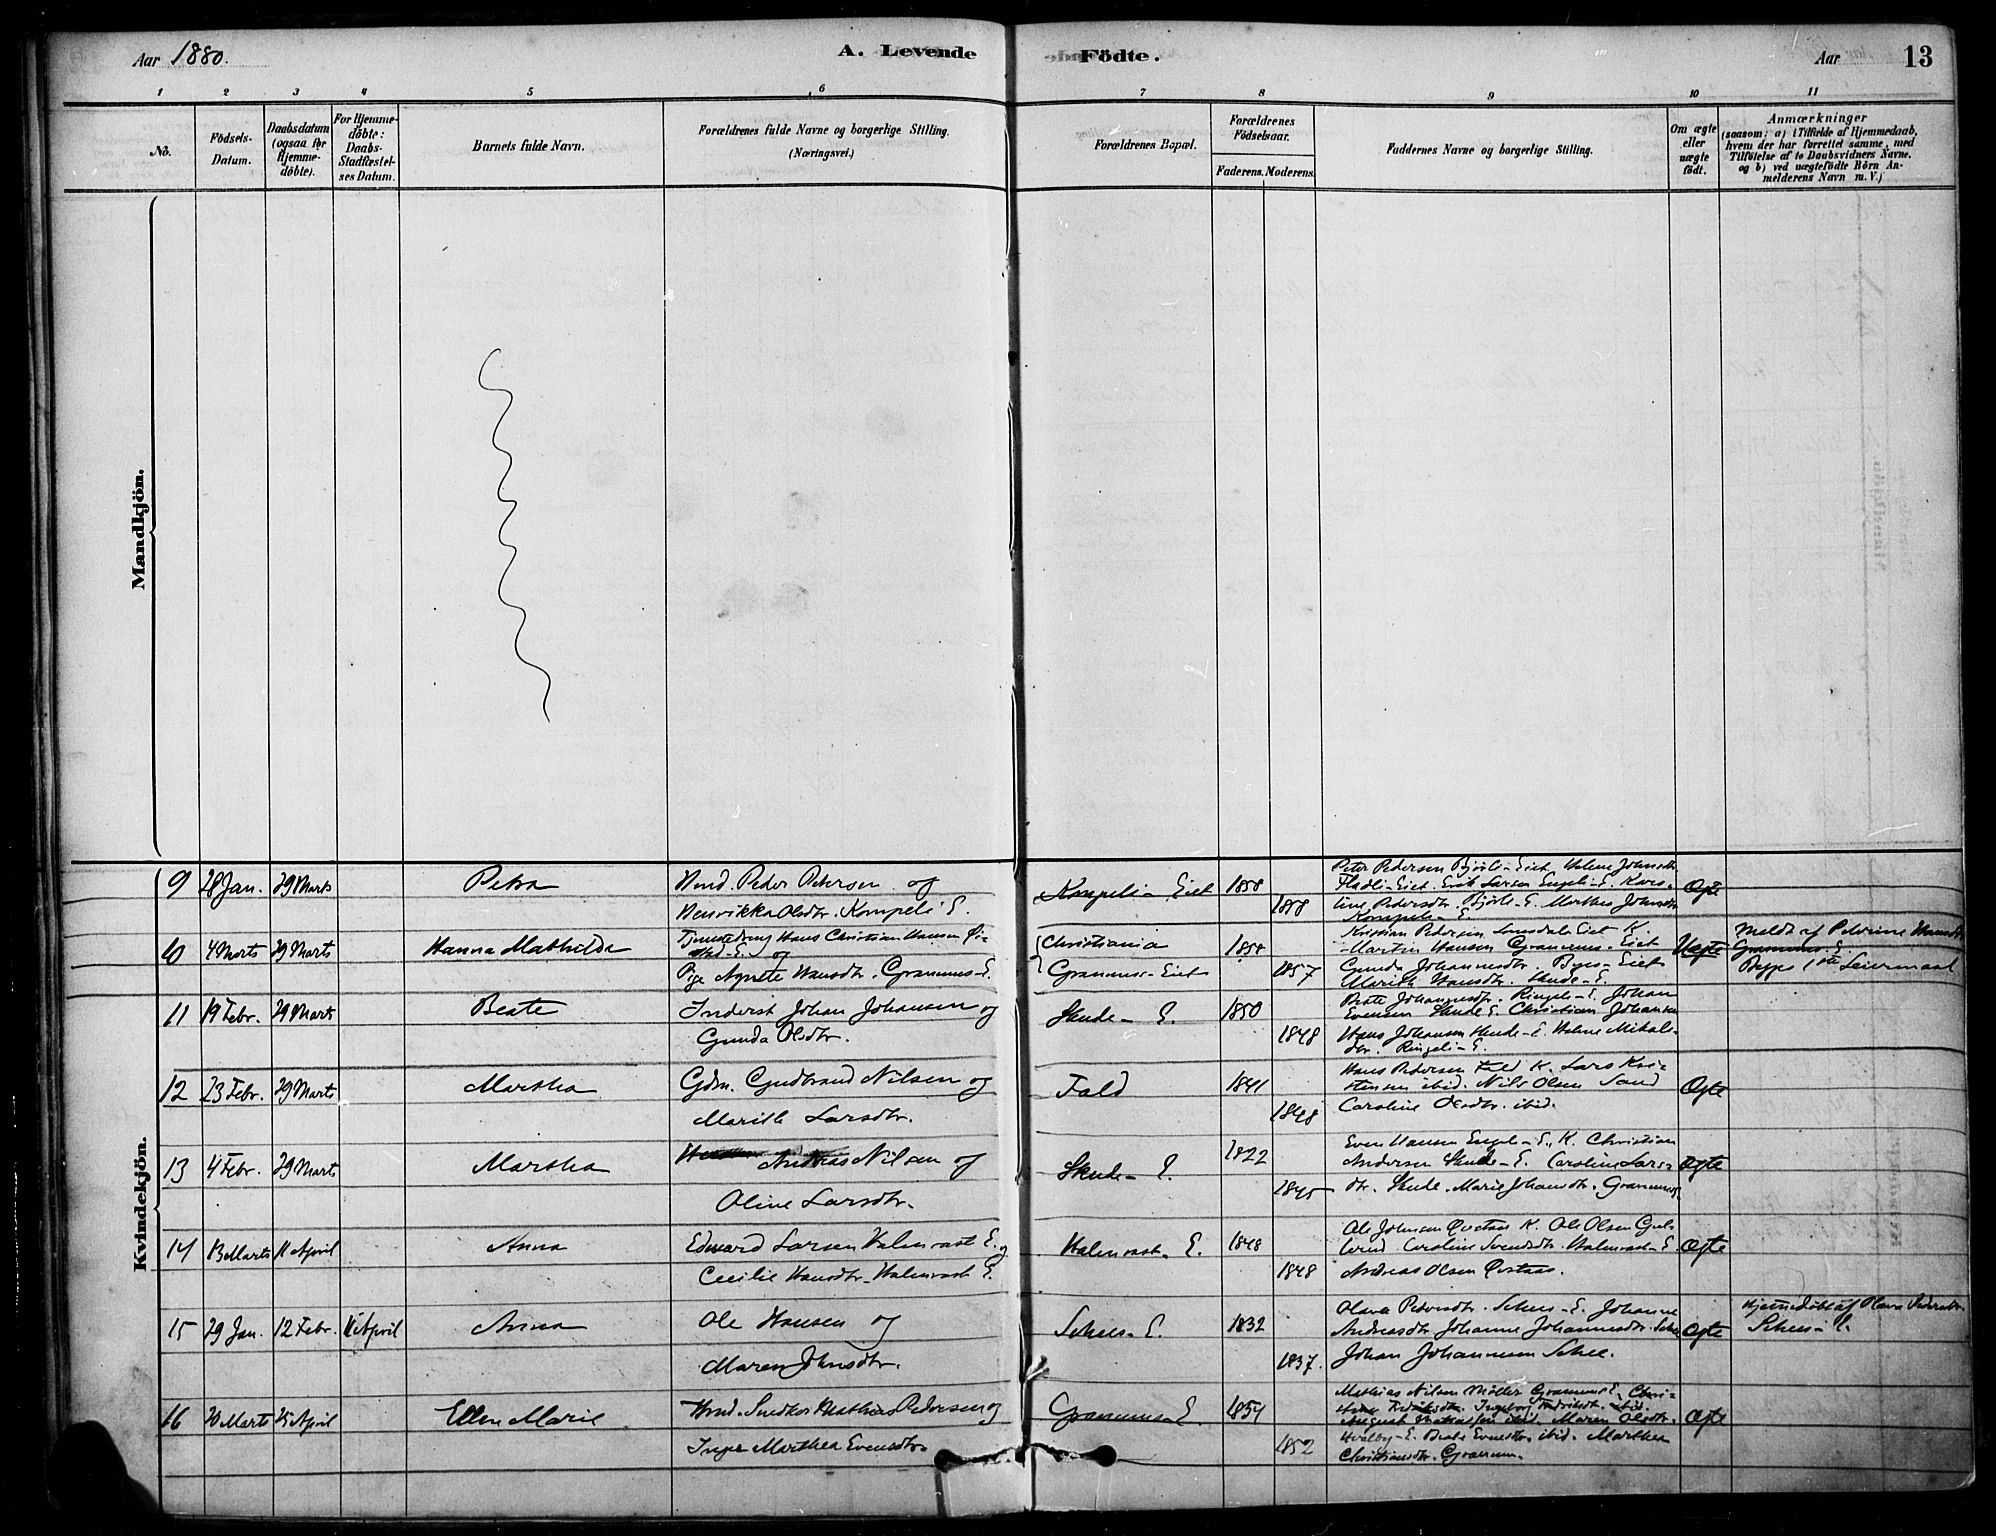 Aar 1880.
A. Levende Födte.
Aar
13
1 2 3 4 5 6 7 8 9 10 11
No.
Födsels-Datum.
Daabsdatum (ogsaa for Hjemme-döbte).
For Hjemme-döbte: Daabs-Stadfæstel-ses Datum.
Barnets fulde Navn.
Forældrenes fulde Navne og borgerlige Stilling. (Næringsvei.)
Forældrenes Bopæl.
Forældrenes Födselsaar.
Faderens. Moderens.
Faddernes Navne og borgerlige Stilling.
Om ægte eller uægte födt.
Anmærkninger (saasom: a) i Tilfælde af Hjemmedaab, hvem der har forrettet samme, med Tilföielse af to Daabsvidners Navne. og b) ved uægtefödte Börn Anmelderens Navn m. V.)
Mandkjön.
Kvindekjön.
9 28 Jan. 29 Marts Petra
Hmd. Peder Petersen og
Henrikka Olsdtr. Kompeli E.
Kompeli- Eiet 1858
1858
Peter Pedersen Bjørli- Eiet Helene Johnsdtr.
Fladli- Eiet. Erik Larsen Engeli-E. Kars-
tine Pedersdtr. Bjørli-E. Marthea Johnsdtr
Kompeli- E.
Ægte
10 4 Marts 29 Marts Hanna Mathilda
Hans Christian Hansen
og
Pige Agnete Hansdtr. Granums-E.
Christiania
Granums- Eiet
1858
1857
Kristian Pedersen Eiet K.
Martin Hansen Granums- Eiet
Gunda Johannesdtr. Eiet
Marith Hansdtr. Skude-E.
Uægte
Meldt af Peterine Hansdtr
Granums-E.
Begges 1ste Leiermaal
11 19 Febr. 29 Marts Beate
Inderst Johan Johansen og
Gunda Olsdtr.
Skude- E. 1850
1848
Beate Johannesdtr. Ringeli-E. Johan
Evensen Skude E. Christian Johansen
Hans Johansen Skude-E. Helene Mikels-
dtr. Ringeli-E.
12 23 Febr. 29 Marts Martha
Gdm. Gudbrand Nilsen og
Marith Larsdtr.
Fald 1841
1848
Hans Pedersen Fald K. Lars Kri-
stensen ibid. Nils Olsen Sand
Caroline Olsdtr. ibid.
Ægte
13 4 Febr. 29 Marts Martha
Andreas Nilsen og
Oline Larsdtr.
Skude- E. 1822
1845
Even Hansen Engel-E. K. Christian
Andersen Skude-E. Caroline Lars-
dtr. Skude. Marie Johansdtr. Granums
Ægte
14 13 Marts 11 April Anna
Edvard Larsen Halmrast E. og
Cecilie Hansdtr. Halmrast E.
Halmrast- E. 1848
1848
Ole Johnsen K. Ole Olsen
Caroline Svendsdtr. Halmrast-E
Andreas Olsen
Ægte
15 29 Jan. 12 Febr. 11 April Anna
Ole Hansen og
Maren Johnsdtr.
Schees- E. 1832
1837.
Olava Pedersdtr. Schees-E. Johanne
Andreasdtr Johanne Johannesdtr. Schee
Johan Johannesen Schee.
Ægte
Hjemmedøbt af Olava Pedersdtr.
Schees- E.
16 20 Marts 25 April Ellen Marie
Hmd. Snedker Mathias Pedersen og
Inger Marthea Evensdtr.
Granums E. 1854
1852
Mathias Nilsen Møller Granums E. Chri-
stine Fredriksdtr. Ingeborg Fredriksdtr. ibid.
August Mathiassen ibid. Maren Olsdtr.
Hvalby- E. Beate Evensdtr. ibid. Marthea
Christiansdtr. Granum.
Ægte